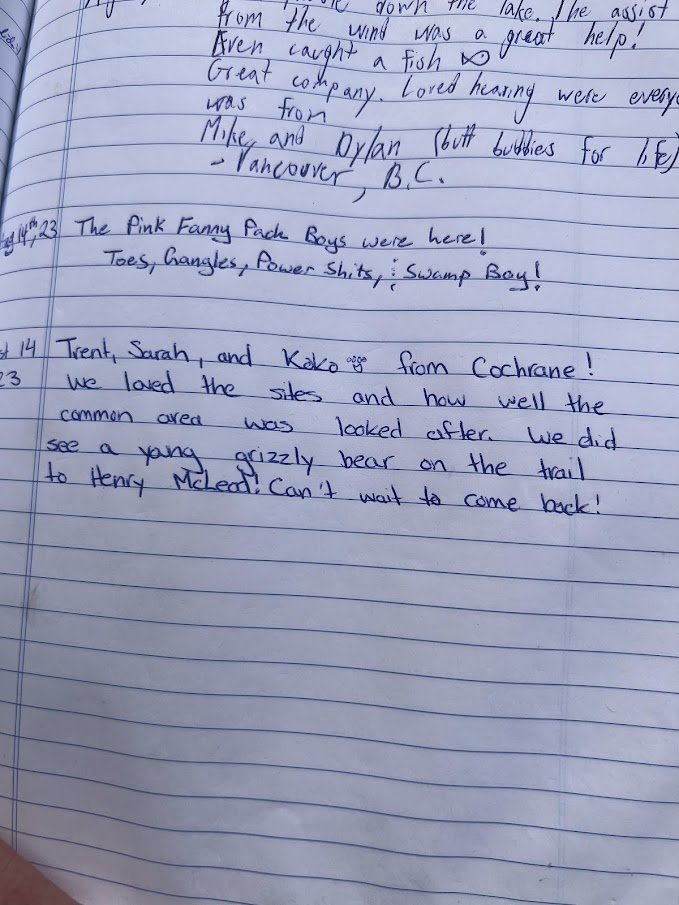 down the lake. The assist
from the wind was a great help!
Aven caught a fish
Great company. Loved hearing were every
was from
Mike, and Dylan (butt buddies for life)
- Vancouver, B.C.
Aug 14th, 23 The Pink Fanny Pack Boys were here!
Toes, Gangles, Power Shits, & Swamp Boy!
st 14 Trent, Sarah, and Koko from Cochrane!
23 We loved the sites and how well the
common area was looked after. We did
see a yang grizzly bear on the trail
to Henry McLeod! Can't wait to come back!